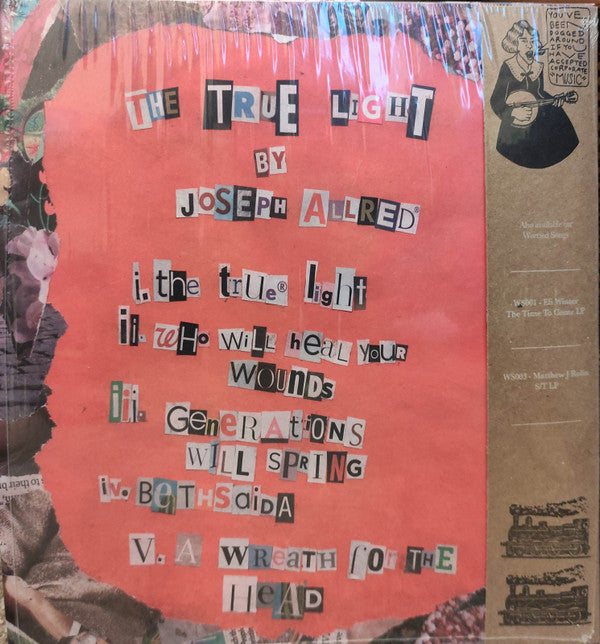 THE TRUE LIGHT
BY
JOSEPH ALLRED®
i. the true® light
ii. who will heal your
wounds
iii. Generations
will spring
iv. BethSaida
V. A Wreath for the
Head
YOU'VE
BEEN
DOGGED
AROUND
IF YOU
HAVE
ACCEPTED
CORPORATE
MUSIC
Also available on
Worried Songs
WS001 - Eli Winter
The Time To Come LP
WS003 - Matthew J Rolin
S/T LP
to their